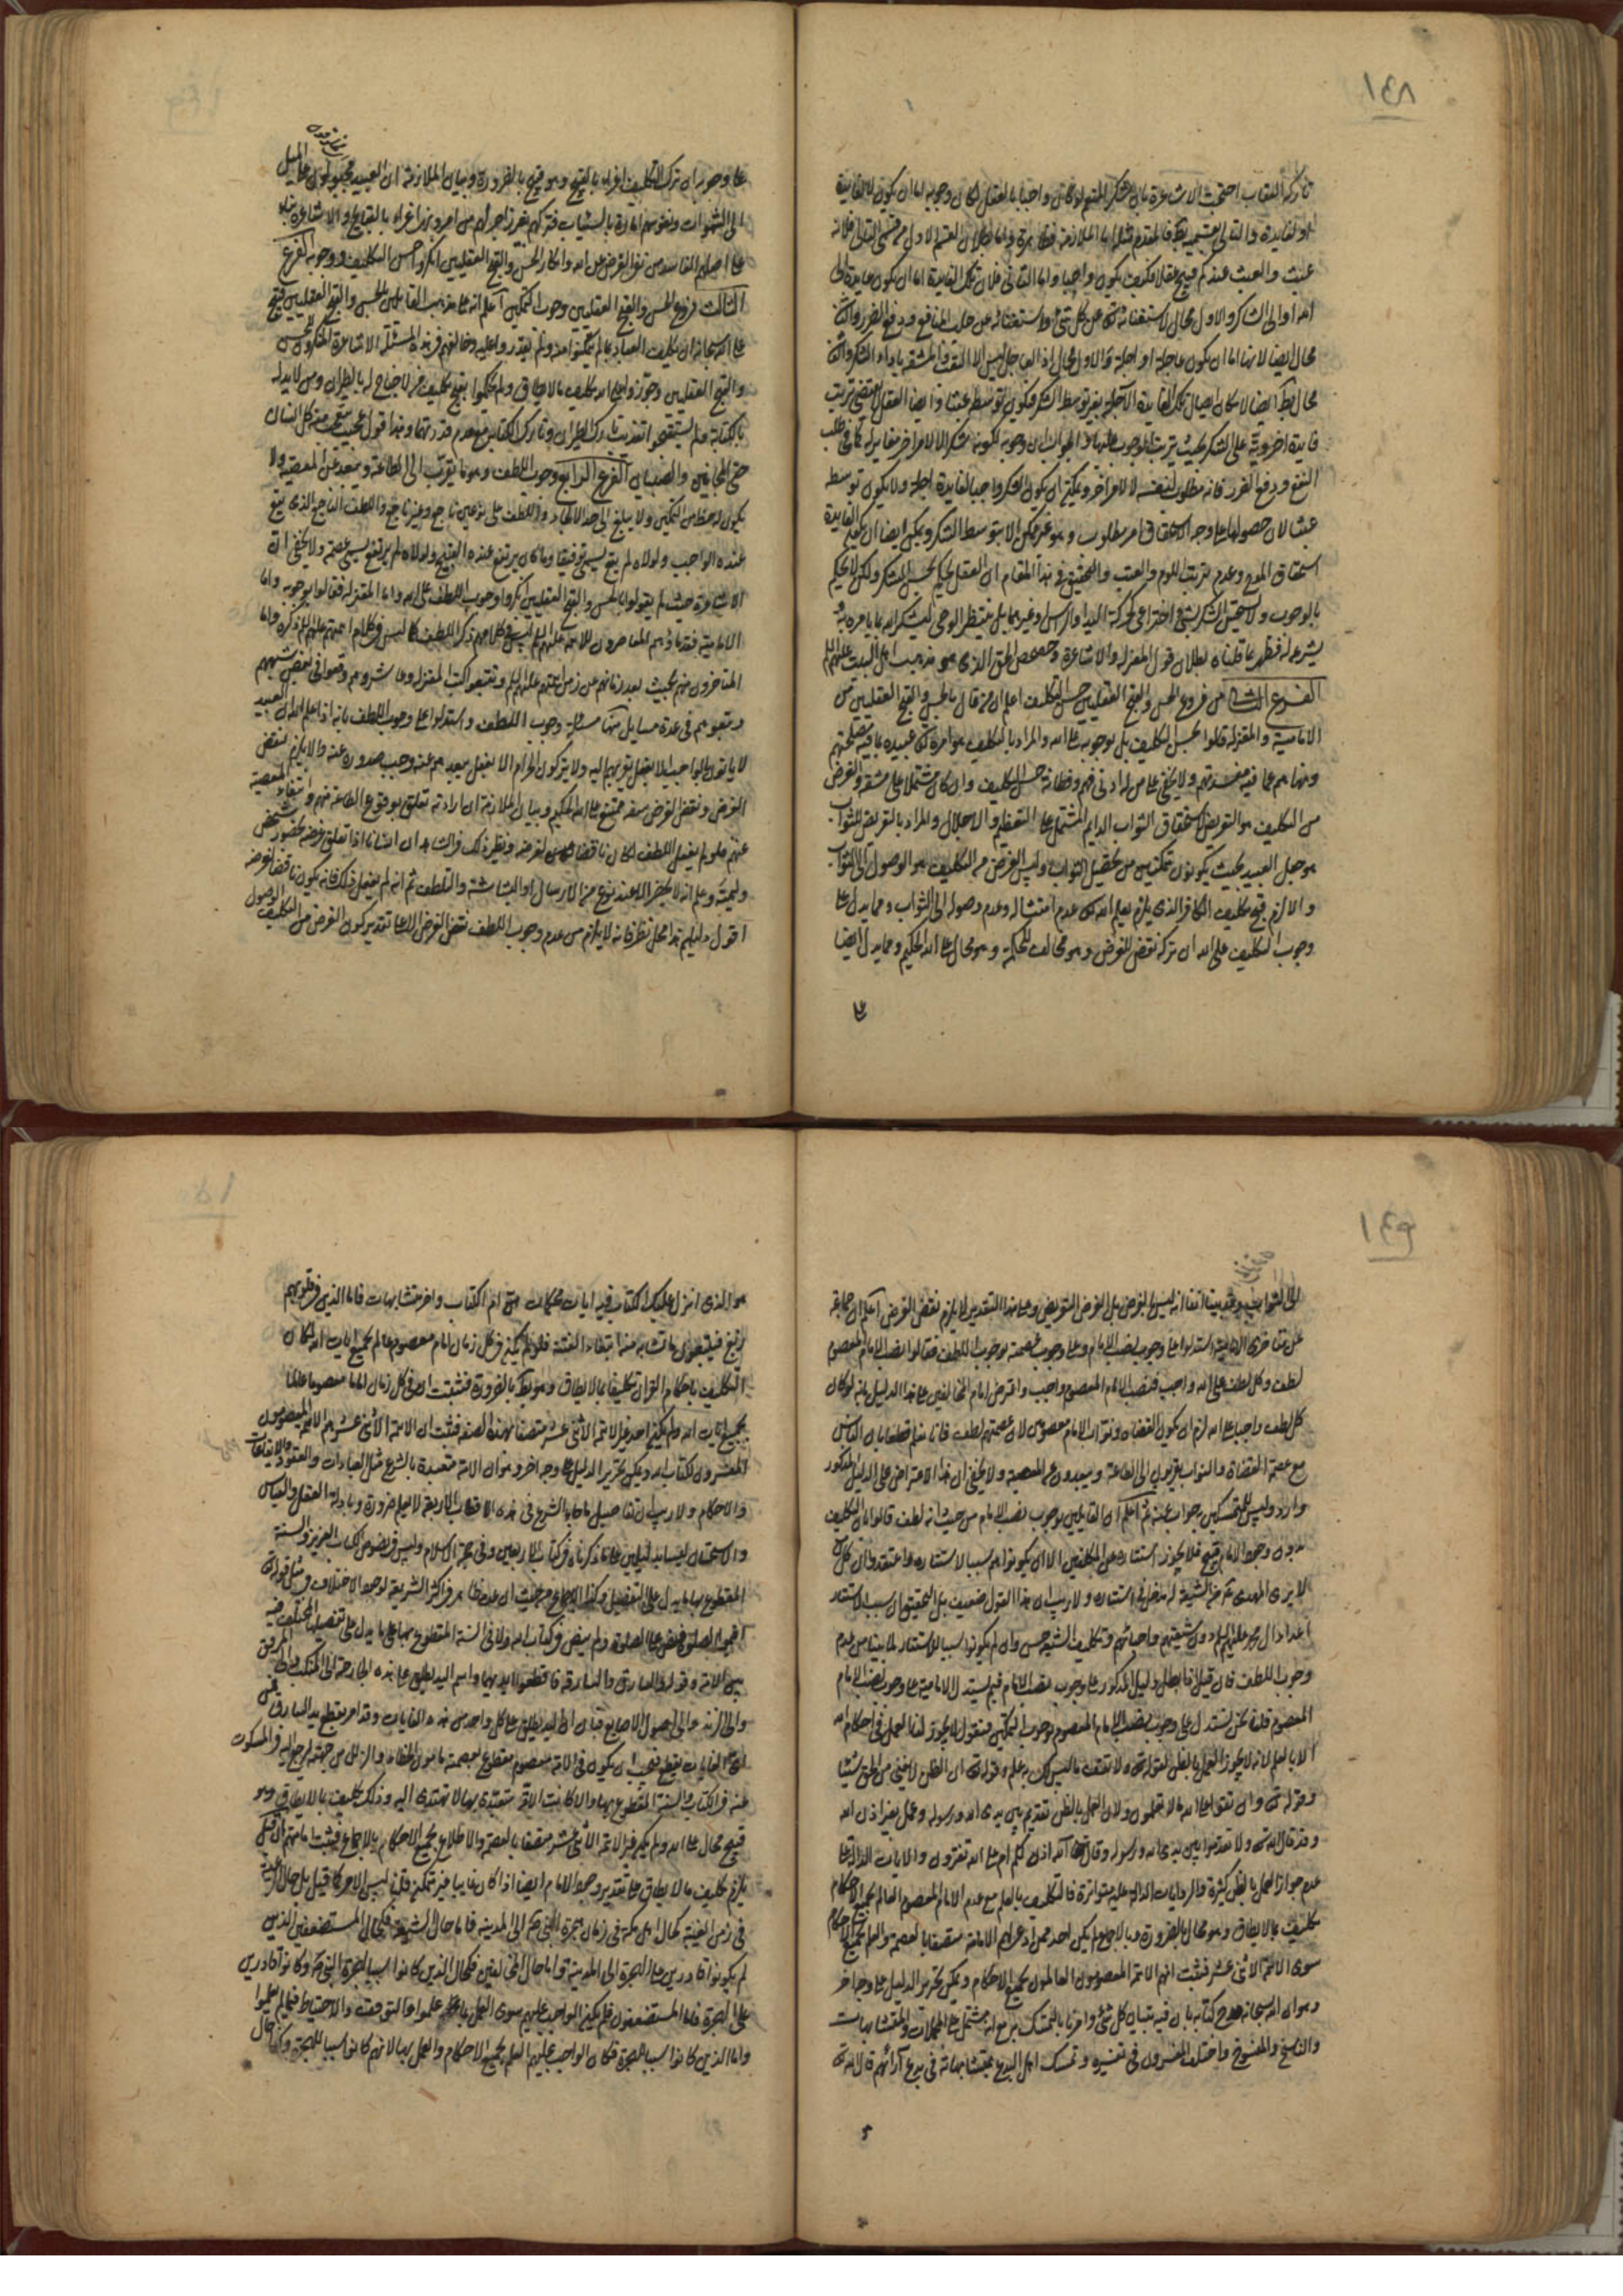 ١٤٨
تاركه العقاب احتجت الاشاعرة بان شكر المنعم لو كان واجبا بالعقل لكان وجوبه اما ان يكون لا لفايدة
او لفايدة والتالي بقسميه فالمقدم مثله اما الملازمة فظاهرة واما بطلان القسم الاول من قسمي التالي فلانه
عبث والعبث عندكم قبيح عقلا فكيف يكون واجبا واما الثاني فلان تلك الفايدة اما ان يكون عايدة الى
الله او الى الشاكر والاول محال لاستغنائه عن كل شئ واستغنائه عن جلب المنافع ودفع الضرر والثاني
محال ايضا لانها اما ان يكون عاجلة او اجلة والاول محال اذ العاجل ليس الا التعب والمشقة باداء الشكر والثاني
محال ايضا لامكان ايصال تلك الفايدة الآجلة بغير توسط الشكر فيكون توسطه عبثا وايضا العقل لا يقتضي ترتب
فايدة اخروية على الشكر بحيث يترتب الوجوب عليها والجواب ان وجوبه لكونه شكرا لا لامر اخر مغاير له كما في طلب
النفع ودفع الضرر فانه مطلوب لنفسه لا لامر اخر ويمكن ان يكون الشكر واجبا لفايدة اجلة ولا يكون توسطه
عبثا لان حصولها على وجه الاستحقاق امر مطلوب وهو غير ممكن الا بتوسط الشكر ويمكن ايضا ان يكون الفايدة
استحقاق المدح وعدم ترتب اللوم والعتب والتحقيق في هذا المقام ان العقل يحكم بحسن الشكر ولكن لا يحكم
بالوجوب ولا يتحقق الشكر بشئ اختراعي كحركة اليد او الراس وغيرهما بل ينتظر الوحي ليشكر الله بما يامره به و
يشرعه له فظهر بما قلناه بطلان قول المعتزلة والاشاعرة وحصحص الحق الذي هو مذهب اهل البيت عليهم السلم
الفرع الثاني من فروع الحسن والقبح العقليين حسن التكليف اعلم ان من قال بالحسن والقبح العقليين من
الامامية والمعتزلة قالوا بحسن التكليف بل بوجوبه على الله والمراد بالتكليف هو امره تعالى عبيده بما فيه مصلحتهم
ونهاهم عما فيه مفسدتهم ولا يخفى على من له ادنى فهم وفطانة حسن التكليف وان كان مشتملا على مشقة والغرض
من التكليف هو التعريض لاستحقاق الثواب الدايم المشتمل على التعظيم والاجلال والمراد بالتعريض للثواب
هو جعل العبيد بحيث يكونون متمكنين من تحصيل الثواب وليس الغرض من التكليف هو الوصول الى الثواب
والا لزم قبح تكليف الكافر الذي يلزم بعلم الله تعالى عدم امتثاله وعدم وصوله الى الثواب ومما يدل على
وجوب التكليف على الله ان تركه نقض للغرض وهو مخالف للحكمة وهو محال على الله الحكيم ومما يدل ايضا
على
على وجوبه ان ترك التكليف اغراء بالقبيح وهو قبيح بالضرورة وبيان الملازمة ان العبيد مجبولون على الميل
الى الشهوات ونفوسهم امارة بالسيئات فتركهم بغير زاجر لهم من امر ونهي اغراء بالقبايح والاشاعرة بناء
على اصلهم الفاسد من نفي الغرض عن الله وانكار الحسن والقبح العقليين انكروا حسن التكليف ووجوبه الفرع
الثالث من فروع الحسن والقبح العقليين وجوب التمكين اعلم انه على مذهب القايلين بالحسن والقبح العقليين قبح
على الله سبحانه ان يكلف العباد بما لم يتمكنوا منه ولم يقدروا عليه وخالفهم في هذه المسئلة الاشاعرة المنكرون للحسن
والقبح العقليين وجوزوا على الله تكليف ما لا يطاق ولم يحكموا بقبح تكليف من لا جناح له بالطيران ومن لا يد له
بالكتابة ولم يستقبحوا تعذيب تارك الطيران وتارك الكتابة مع عدم قدرتهما وهذا قول عجيب يتعجب منه كل انسان
حتى المجانين والصبيان الفرع الرابع وجوب اللطف وهو ما يقرب الى الطاعة ويبعد عن المعصية ولا
يكون له حظ من التمكين ولا يبلغ الى حد الالجاء واللطف على نوعين ناجع وغير ناجع واللطف الناجع الذي يقع
عنده الواجب ولولاه لم يقع يسمى توفيقا وما كان يرتفع عنده القبيح ولولاه لم يرتفع يسمى عصمة ولا يخفى ان
الاشاعرة حيث لم يقولوا بالحسن والقبح العقليين انكروا وجوب اللطف على الله واما المعتزلة فقالوا بوجوبه واما
الامامية فقدماؤهم المعاصرون للائمة عليهم السلم ليس في كلامهم ذكر اللطف كما ليس في كلام ائمتهم عليهم السلم ذكره واما
المتاخرون منهم بحيث بعد زمانهم عن زمن ائمتهم عليهم السلم وتتبعوا كتب المعتزلة وعاشروهم وقعوا في بعض شبههم
وتبعوهم في عدة مسايل منها مسئلة وجوب اللطف واستدلوا على وجوب اللطف بانه اذا علم الله ان العبيد
لا ياتون بالواجب الا بفعل يقربهم اليه ولا يتركون الحرام الا بفعل يبعدهم عنه وجب صدوره عنه والا يلزم نقض
الغرض ونقض الغرض سفه ممتنع على الله الحكيم وبيان الملازمة ان ارادته تعلق بوقوع الطاعة منهم وانتفاء المعصية
عنهم فلو لم يفعل اللطف لكان ناقضا لغرضه ونظير ذلك في الشاهد ان انسانا اذا تعلق غرضه بحضور شخص
وليمته وعلم انه لا يحضر الا عند نوع من الارسال او البشاشة والتلطف ثم انه لم يفعل ذلك فانه يكون ناقضا لغرضه
اقول دليلهم هذا محل نظر فانه لا يلزم من عدم وجوب اللطف نقض الغرض الا على تقدير كون الغرض من التكليف الوصول
١٤٩
الى الثواب وقد بينا آنفا انه ليس الغرض بل الغرض التعريض وعلى هذا التقدير لا يلزم نقض الغرض اعلم ان جماعة
من متاخري الامامية استدلوا على وجوب نصب الامام وعلى وجوب عصمته بوجوب اللطف فقالوا نصب الامام المعصوم
لطف وكل لطف على الله واجب فنصب الامام المعصوم واجب واعترض امام المخالفين على هذا الدليل بانه لو كان
كل لطف واجبا على الله لزم ان يكون القضاة ونواب الامام معصومين لان عصمتهم لطف فانا نعلم قطعا بان الناس
مع عصمة القضاة والنواب يقربون الى الطاعة ويبعدون عن المعصية ولا يخفى ان هذا الاعتراض على الدليل المذكور
وارد وليس للمتمسكين جواب عنه ثم اعلم ان القايلين بوجوب نصب الامام من حيث انه لطف قالوا بان التكليف
بدون وجود الامام قبيح فلا يجوز استتاره عن المكلفين الا ان يكونوا هم سببا لاستتاره واعتقدوا ان كل من
لا يرى المهدي من الشيعة له مدخل في استتاره ولا ريب ان هذا القول ضعيف بل التحقيق ان سبب الاستتار
اعداء آل محمد عليهم السلم دون شيعتهم واحبائهم وتكليف الشيعة حسن وان لم يكونوا سببا للاستتار لما بينا من عدم
وجوب اللطف فان قيل اذا بطل دليل المذكور على وجوب نصب الامام فبم يستدل الامامية على وجوب نصب الامام
المعصوم قلنا نحن نستدل على وجوب نصب الامام المعصوم بوجوب التمكين فنقول لا يجوز لنا العمل في احكام الله
الا بالعلم لانه لا يجوز العمل بالظن لقوله تعالى ولا تقف ما ليس لك به علم وقوله تعالى ان الظن لا يغني من الحق شيئا
وقوله تعالى وان تقولوا على الله ما لا تعلمون ولان العمل بالظن تقديم بين يدي الله ورسوله وعمل بغير اذن الله
وقد قال الله تعالى ولا تقدموا بين يدي الله ورسوله وقال تعالى آلله اذن لكم ام على الله تفترون والايات الدالة على
عدم جواز العمل بالظن كثيرة والروايات الدالة عليه متواترة فالتكليف بالعلم مع عدم الامام المعصوم العالم بجميع الاحكام
تكليف بما لا يطاق وهو محال بالضرورة وبالاجماع لم يكن احد ممن ادعى لهم الامامة متصفا بالعصمة والعلم بجميع الاحكام
سوى الائمة الاثنى عشر فثبت انهم الائمة المعصومون العالمون بجميع الاحكام ويمكن تحرير الدليل على وجه اخر
وهو ان الله سبحانه مدح كتابه بان فيه تبيان كل شئ وامرنا بالتمسك به مع انه مشتمل على المجملات والمتشابهات
والناسخ والمنسوخ واختلف المفسرون في تفسيره وتمسك اهل البدع بمتشابهاته في بدع آرائهم قال الله تعالى
هو الذي انزل عليك الكتاب فيه ايات محكمات هن ام الكتاب واخر متشابهات فاما الذين في قلوبهم
زيغ فيتبعون ما تشابه منه ابتغاء الفتنة فلو لم يكن في كل زمان امام معصوم عالم بجميع ايات الله لكان
التكليف باحكام القران تكليفا بما لا يطاق وهو بالضرورة فثبت ان في كل زمان اماما معصوما عالما
بجميع ايات الله ولم يكن احد غير الائمة الاثنى عشر متصفا بهذه الصفة فثبت ان الائمة الاثنى عشر هم الائمة المعصومون
المفسرون لكتاب الله ويمكن تحرير الدليل على وجه اخر وهو ان الامة متعبدة بالشرع مثل العبادات والعقود والايقاعات
والاحكام ولا ريب ان تفاصيل ما جاء به الشرع في هذه الاقطاب الاربعة لا يعلم ضرورة ولا بادلة العقل والقياس
والاستحسان ليسا بدليلين على ما ذكرناه في كتاب الاربعين وفي حجة الاسلام وليس في نصوص الكتاب العزيز والسنة
المقطوع بها ما يدل على التفصيل وكذا الاجماع من حيث ان عدمه ظاهر في اكثر الشريعة لوجود الاختلاف ومثل قوله تعالى
اقيموا الصلوة فنص على الصلوة ولم ينص في كتاب الله ولا في السنة المقطوع بها على ما يدل على تفصيلها المختلف فيه
بين الامة وقوله والسارق والسارقة فاقطعوا ايديهما واسم اليد يطلق على هذه الجارحة الى المنكب والى المرفق
والى الزند والى اصول الاصابع فبان ان اليد يطلق على كل واحد من هذه الغايات وقد امر بقطع يد السارق فمن
اي الغايات يقطع فيجب ان يكون في الامة معصوم مقطوع بعصمته مامون الخطاء والزلل من جهته يرجع اليه في المسكوت
عنه في الكتاب والسنة المقطوع بها والا كانت الامة متعبدة بما لا تهتدي اليه وذلك تكليف بما لا يطاق وهو
قبيح محال على الله ولم يكن غير الائمة الاثنى عشر متصفا بالعصمة والاطلاع بجميع الاحكام بالاجماع فيثبت امامتهم فان قيل
يلزم تكليف ما لا يطاق على تقدير وجود الامام ايضا اذا كان غايبا غير متمكن قلنا ليس الامر كما قيل بل حال الامة
في زمن الغيبة كحال اهل مكة في زمان هجرة النبي الى المدينة فاما حال الشيعة فكحال المستضعفين الذين
لم يكونوا قادرين على الهجرة الى المدينة واما حال المخالفين فكحال الذين كانوا سببا لهجرة النبي وكانوا قادرين
على الهجرة فاما المستضعفون فلم يكن الواجب عليهم سوى العمل بما علموا والتوقف والاحتياط فيما لم يعلموا
واما الذين كانوا سببا للهجرة فكان الواجب عليهم العلم بجميع الاحكام والعمل بها لانهم كانوا سببا للهجرة وكذا حال